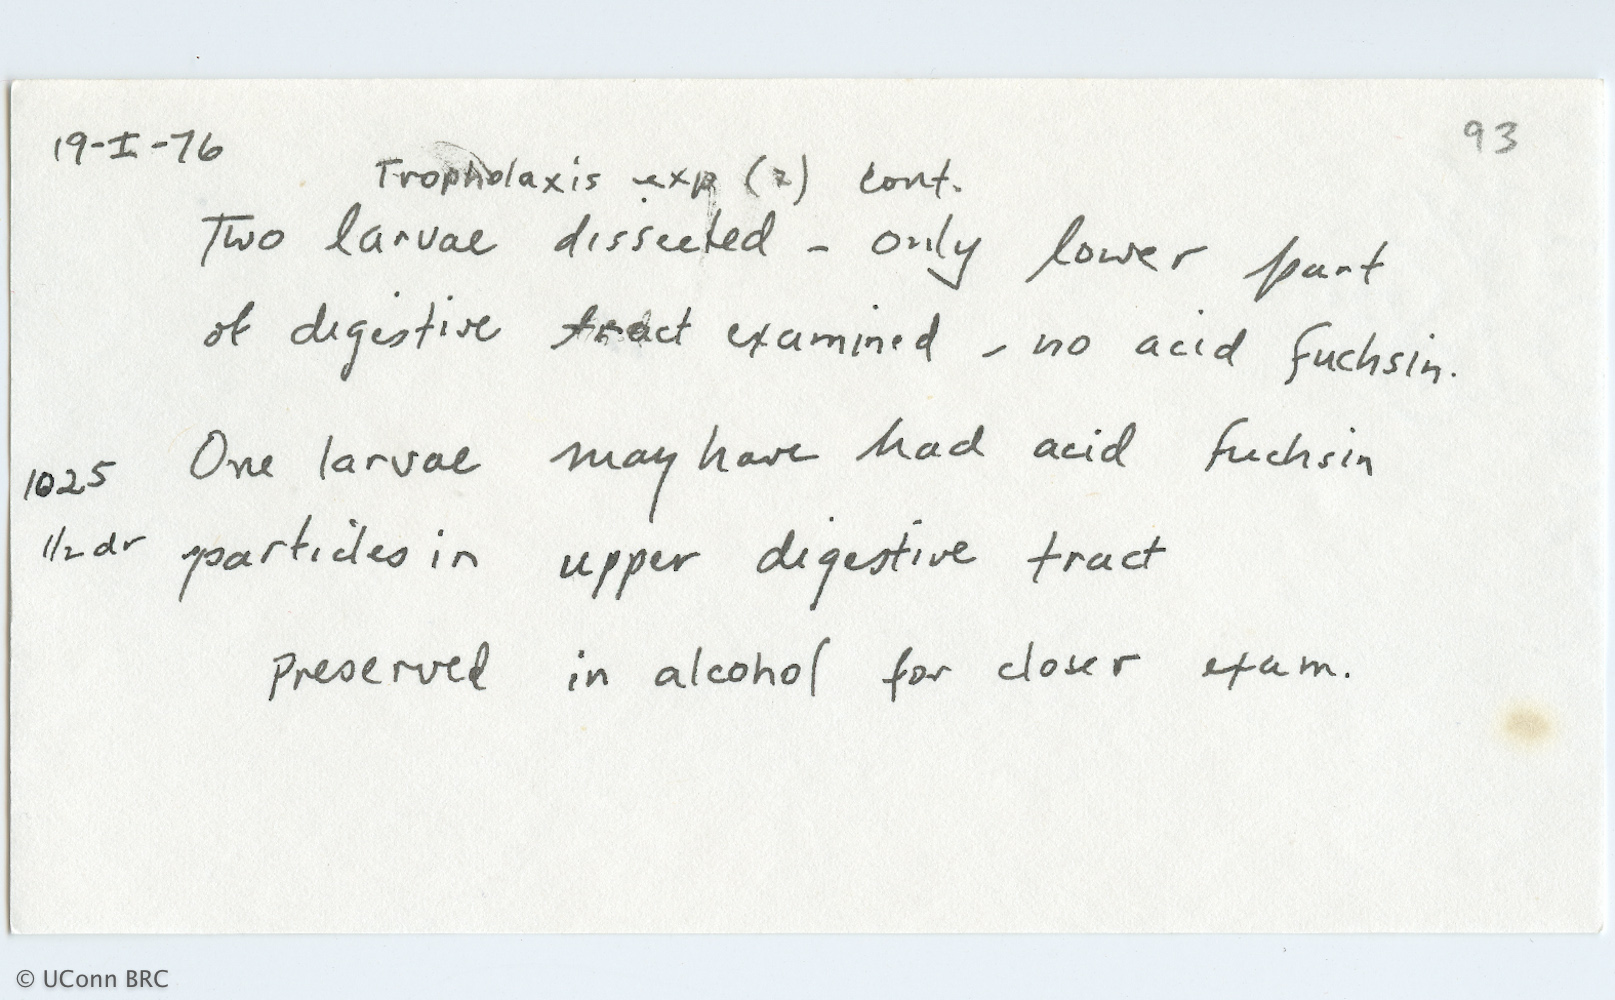 19-I-76
93
Tropholaxis exp (2) cont.
Two larvae dissected - only lower part
of digestive tract examined - no acid fuchsin.
1025 One larvae may have had acid fuchsin
1/2 dr particles in upper digestive tract
preserved in alcohol for closer exam.
© UConn BRC